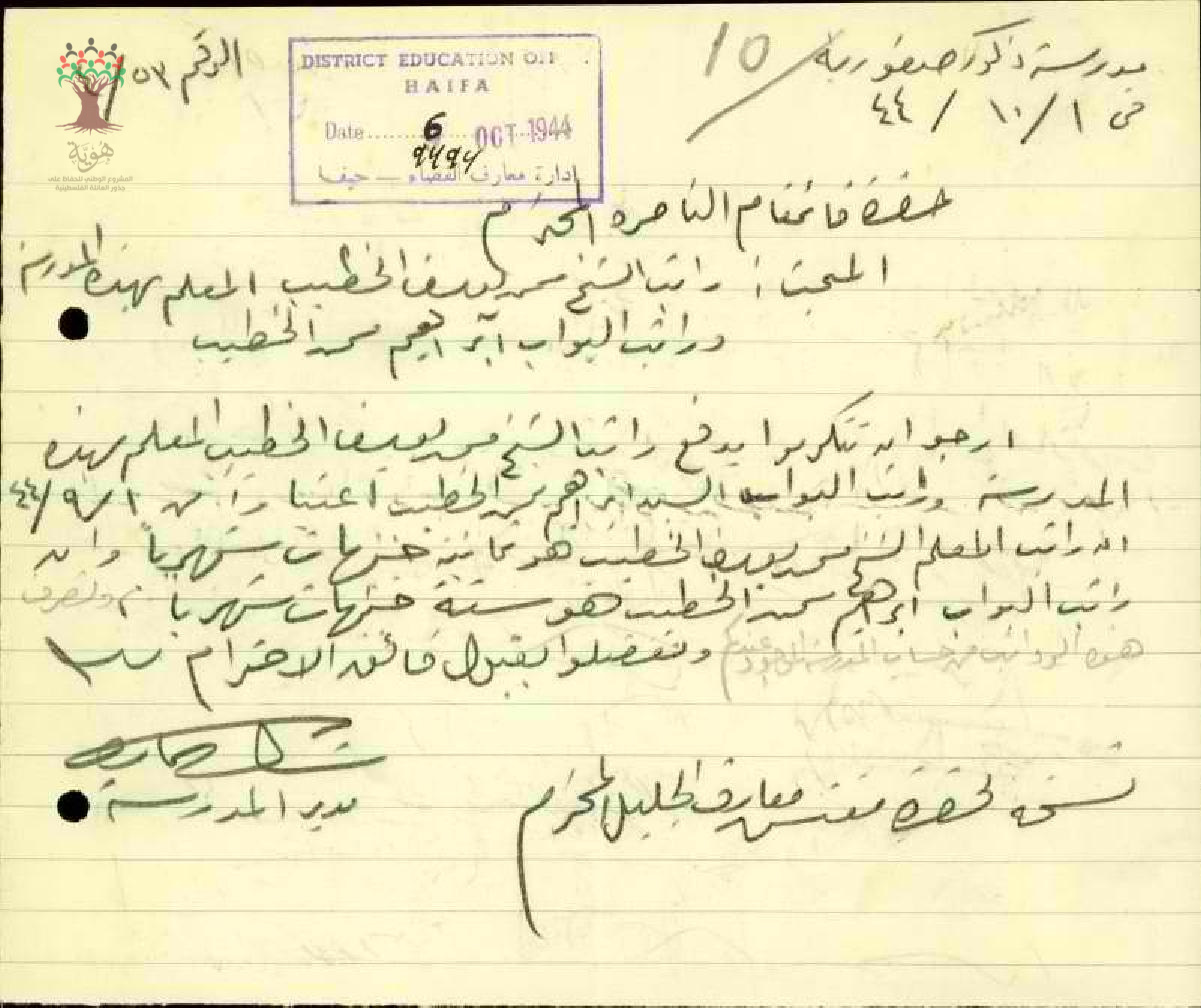 مدرسة ذكور صفورية
في ١/١٠/٤٤
10
الرقم ٥٣/
DISTRICT EDUCATION OFF
HAIFA
Date 6 OCT 1944
9494
إدارة معارف القضاء — حيفا
هوية
المشروع الوطني للحفاظ على
جذور العائلة الفلسطينية
حضرة قائمقام الناصرة المحترم
المبحث: راتب الشيخ محمد يوسف الخطيب المعلم بهذه المدرسة
وراتب البواب ابراهيم محمد الخطيب
ارجو ان تتكرموا بدفع راتب الشيخ محمد يوسف الخطيب المعلم بهذه
المدرسة وراتب البواب السيد ابراهيم محمد الخطيب اعتبارا من ١/٩/٤٤
ان راتب المعلم الشيخ محمد يوسف الخطيب هو ثمانية جنيهات شهرياً وان
راتب البواب ابراهيم محمد الخطيب هو ستة جنيهات شهريا وتصرف
هذه الرواتب من حساب المدرسة الموجود عندكم وتفضلوا بقبول فائق الاحترام
مدير المدرسة
نسخة لحضرة مفتش معارف الجليل المحترم